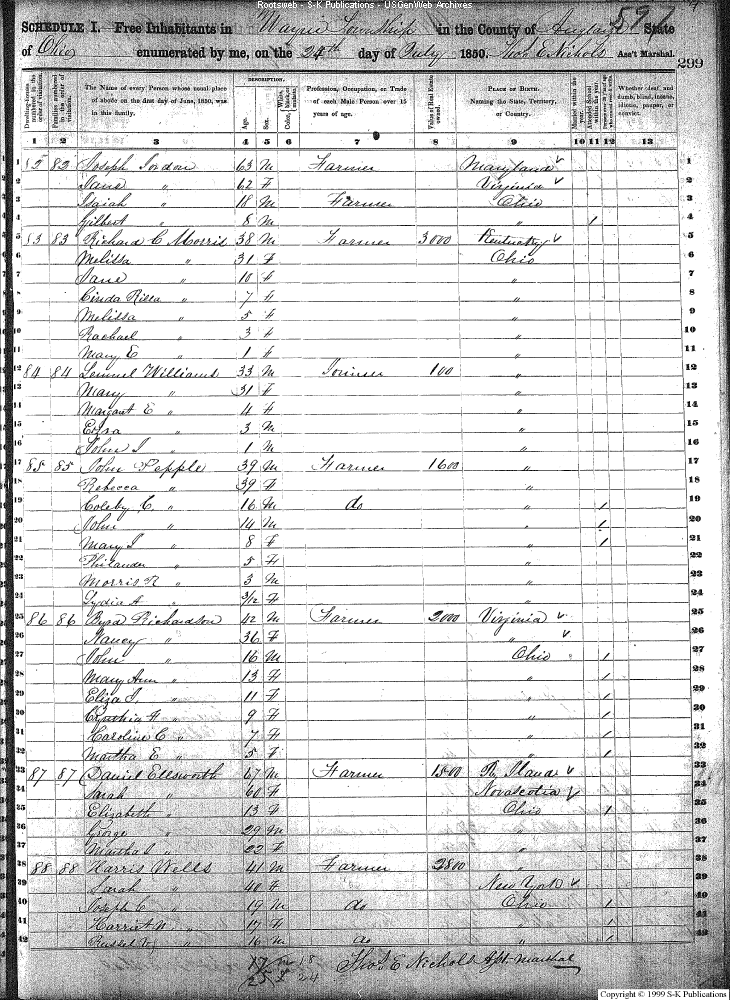 Rootsweb - S-K Publications - USGenWeb Archives
597
SCHEDULE I. Free Inhabitants in Wayne Township in the County of Auglaize State
of Ohio enumerated by me, on the 24th day of July 1850. Thos E Nichols Ass't Marshal.
299
Dwelling-houses numbered in the order of visitation.
Families numbered in the order of visitation.
The Name of every Person whose usual place of abode on the first day of June, 1850, was in this family.
DESCRIPTION.
Age.
Sex.
Color, White, black, or mulatto.
Profession, Occupation, or Trade of each Male Person over 15 years of age.
Value of Real Estate owned.
PLACE OF BIRTH. Naming the State, Territory, or Country.
Married within the year.
Attended School within the year.
Whether deaf and dumb, blind, insane, idiotic, pauper, or convict.
1 2 3 4 5 6 7 8 9 10 11 12 13
1 82 Joseph Jordon 63 M Farmer Maryland 1
2 Jane " 62 F Virginia 2
3 Isaiah " 18 M Farmer Ohio 3
4 Gilbert " 8 M " 1 4
5 83 83 Richard C Morris 38 M Farmer 3000 Kentucky 5
6 Melissa " 31 F Ohio 6
7 Jane " 10 F " 7
8 Cinda Rilla " 7 F " 8
9 Melissa " 5 F " 9
10 Rachael " 3 F " 10
11 Mary E " 1 F " 11
12 84 84 Lemuel Williams 33 M Joiner 100 " 12
13 Mary " 31 F " 13
14 Margaret E " 4 F " 14
15 Ezra " 3 M " 15
16 John I " 1 M " 16
17 85 85 John Pepple 39 M Farmer 1600 " 17
18 Rebecca " 39 F " 18
19 Coleby C. " 16 M do " 1 19
20 John " 14 M " 1 20
21 Mary I " 8 F " 1 21
22 Philander " 5 " 22
23 Morris R " 3 M " 23
24 Lydia A " 3/12 F " 24
25 86 86 Richardson 42 M Farmer 2000 Virginia 25
26 Nancy " 36 F " 26
27 John " 16 M Ohio 1 27
28 Mary Ann " 13 F " 1 28
29 Eliza J. " 11 F " 1 29
30 Cynthia " 9 F " 1 30
31 Caroline C " 7 F " 1 31
32 Martha E " 5 F " 1 32
33 87 87 Daniel Ellsworth 67 M Farmer 1500 R. Island 33
34 Sarah " 60 F Novascotia 34
35 Elizabeth " 13 F Ohio 1 35
36 George " 29 M " 36
37 Martha " 22 F " 37
38 88 88 Harris Wells 41 M Farmer 2800 " 38
39 Sarah " 40 F New York 39
40 Joseph C " 19 M do Ohio 1 40
41 Harriet " 17 F " 1 41
42 Russel " 16 M do " 1 42
m 18
f 24
Thos E Nichols Asst. Marshal
Copyright © 1999 S-K Publications